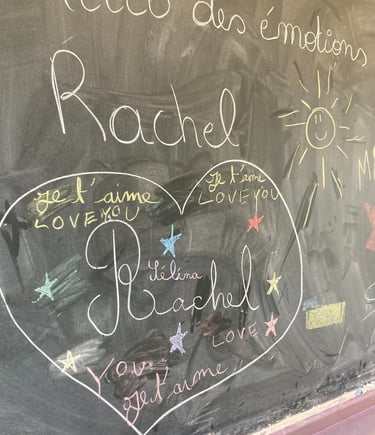 des émotions
Rachel
je t'aime
LOVE YOU
je t'aime
LOVE YOU
Séléna
Rachel
LOVE
YOU
je t'aime